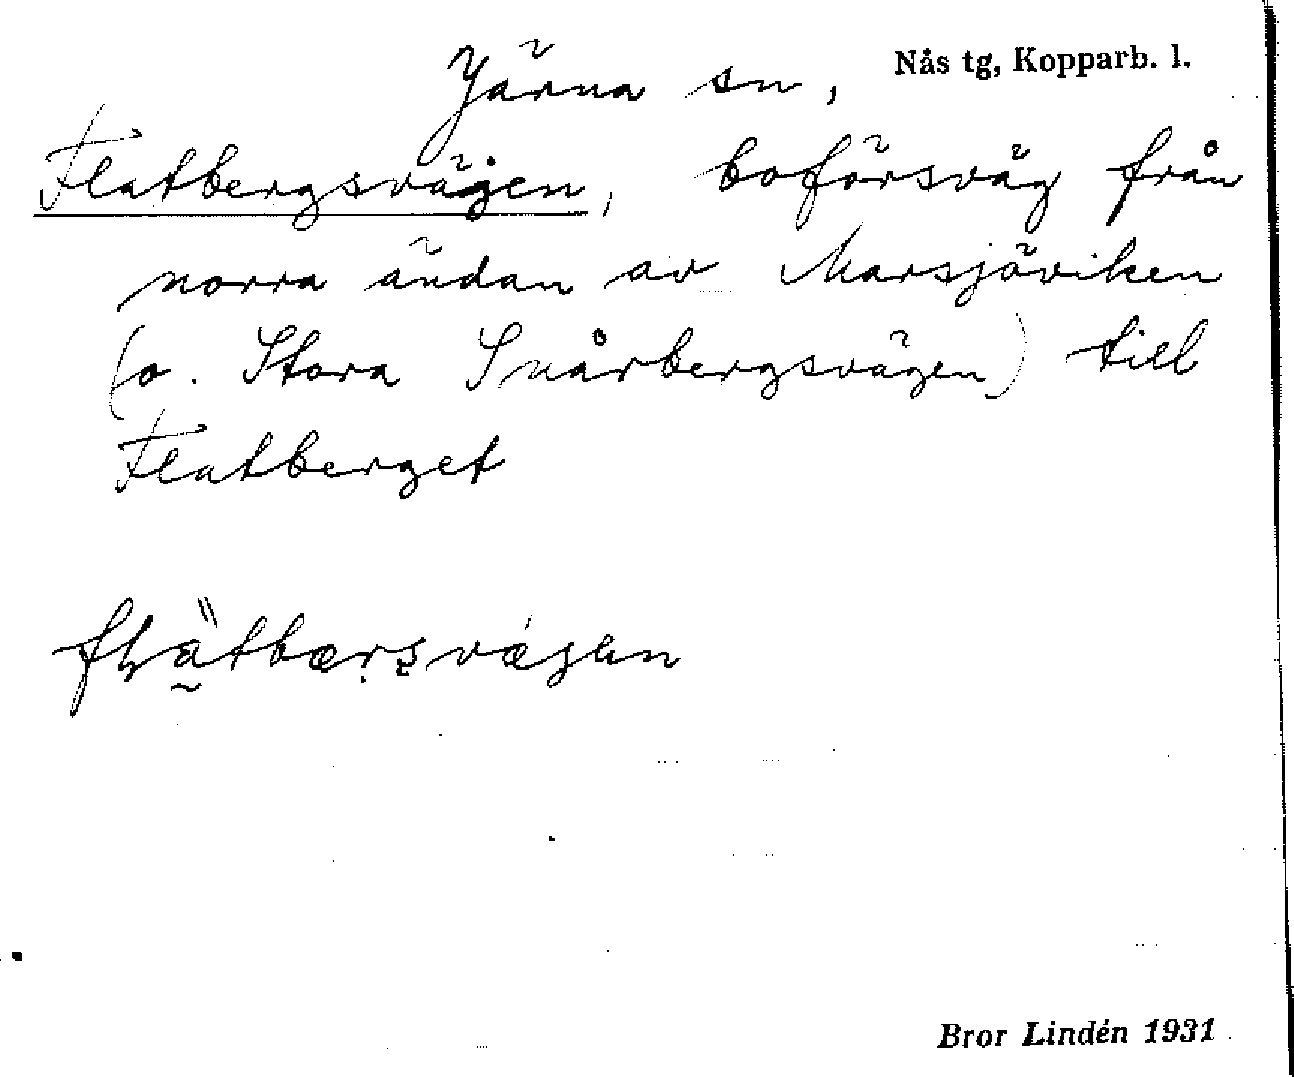 Järna sn, Nås tg, Kopparb. l.
Flatbergsvägen, boförsväg från
norra ändan av Marsjöviken
(o. Stora Snårbergsvägen) till
Flatberget
Bror Lindén 1931